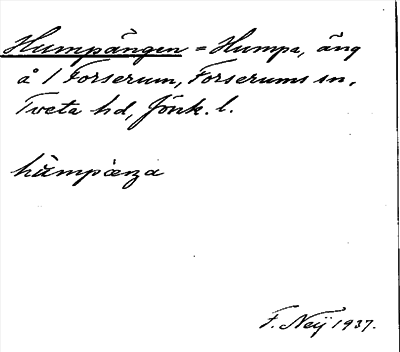 Humpängen = Humpa, äng
å 1 Forserum, Forserums sn,
Tveta hd, Jönk. l.
hùmpæŋa
F. Neij 1937.